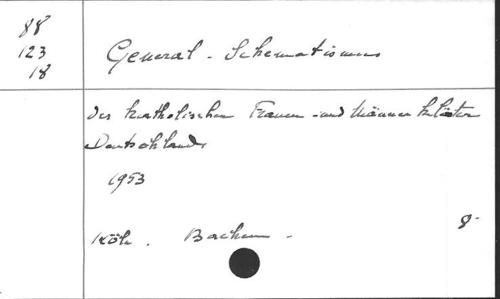 88
123
18
General - Schematismus
der katholischen Frauen - und Männerklöster
Deutschlands
1953
Köln. Bachem -
8°